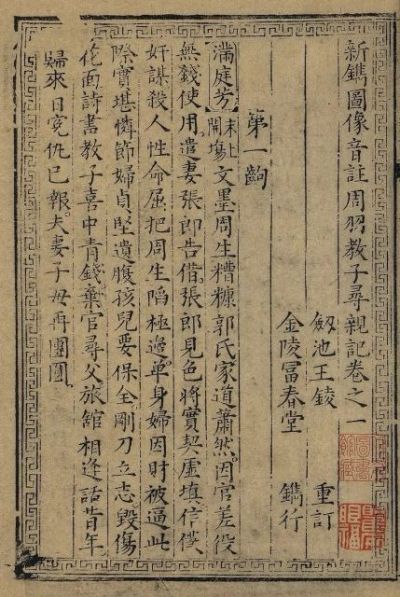 新鐫圖像音註周羽教子尋親記卷之一
劔池王錂 重訂
金陵冨春堂 鐫行
第一齣
滿庭芳 末上開塲 文墨周生糟糠郭氏家道蕭然。因官差役
無錢使用。遣妻張郎告借。張郎見色將實契虛填信僕
奸謀殺人性命屈把周生陷極邊。单身婦因財被逼此
際實堪憐節婦貞堅遺腹孩兒要保全。剛刀立志毀傷
花面詩書教子喜中青錢棄官尋父旅舘相逢話昔年
歸來日寃仇已報。夫妻子母再團圓。